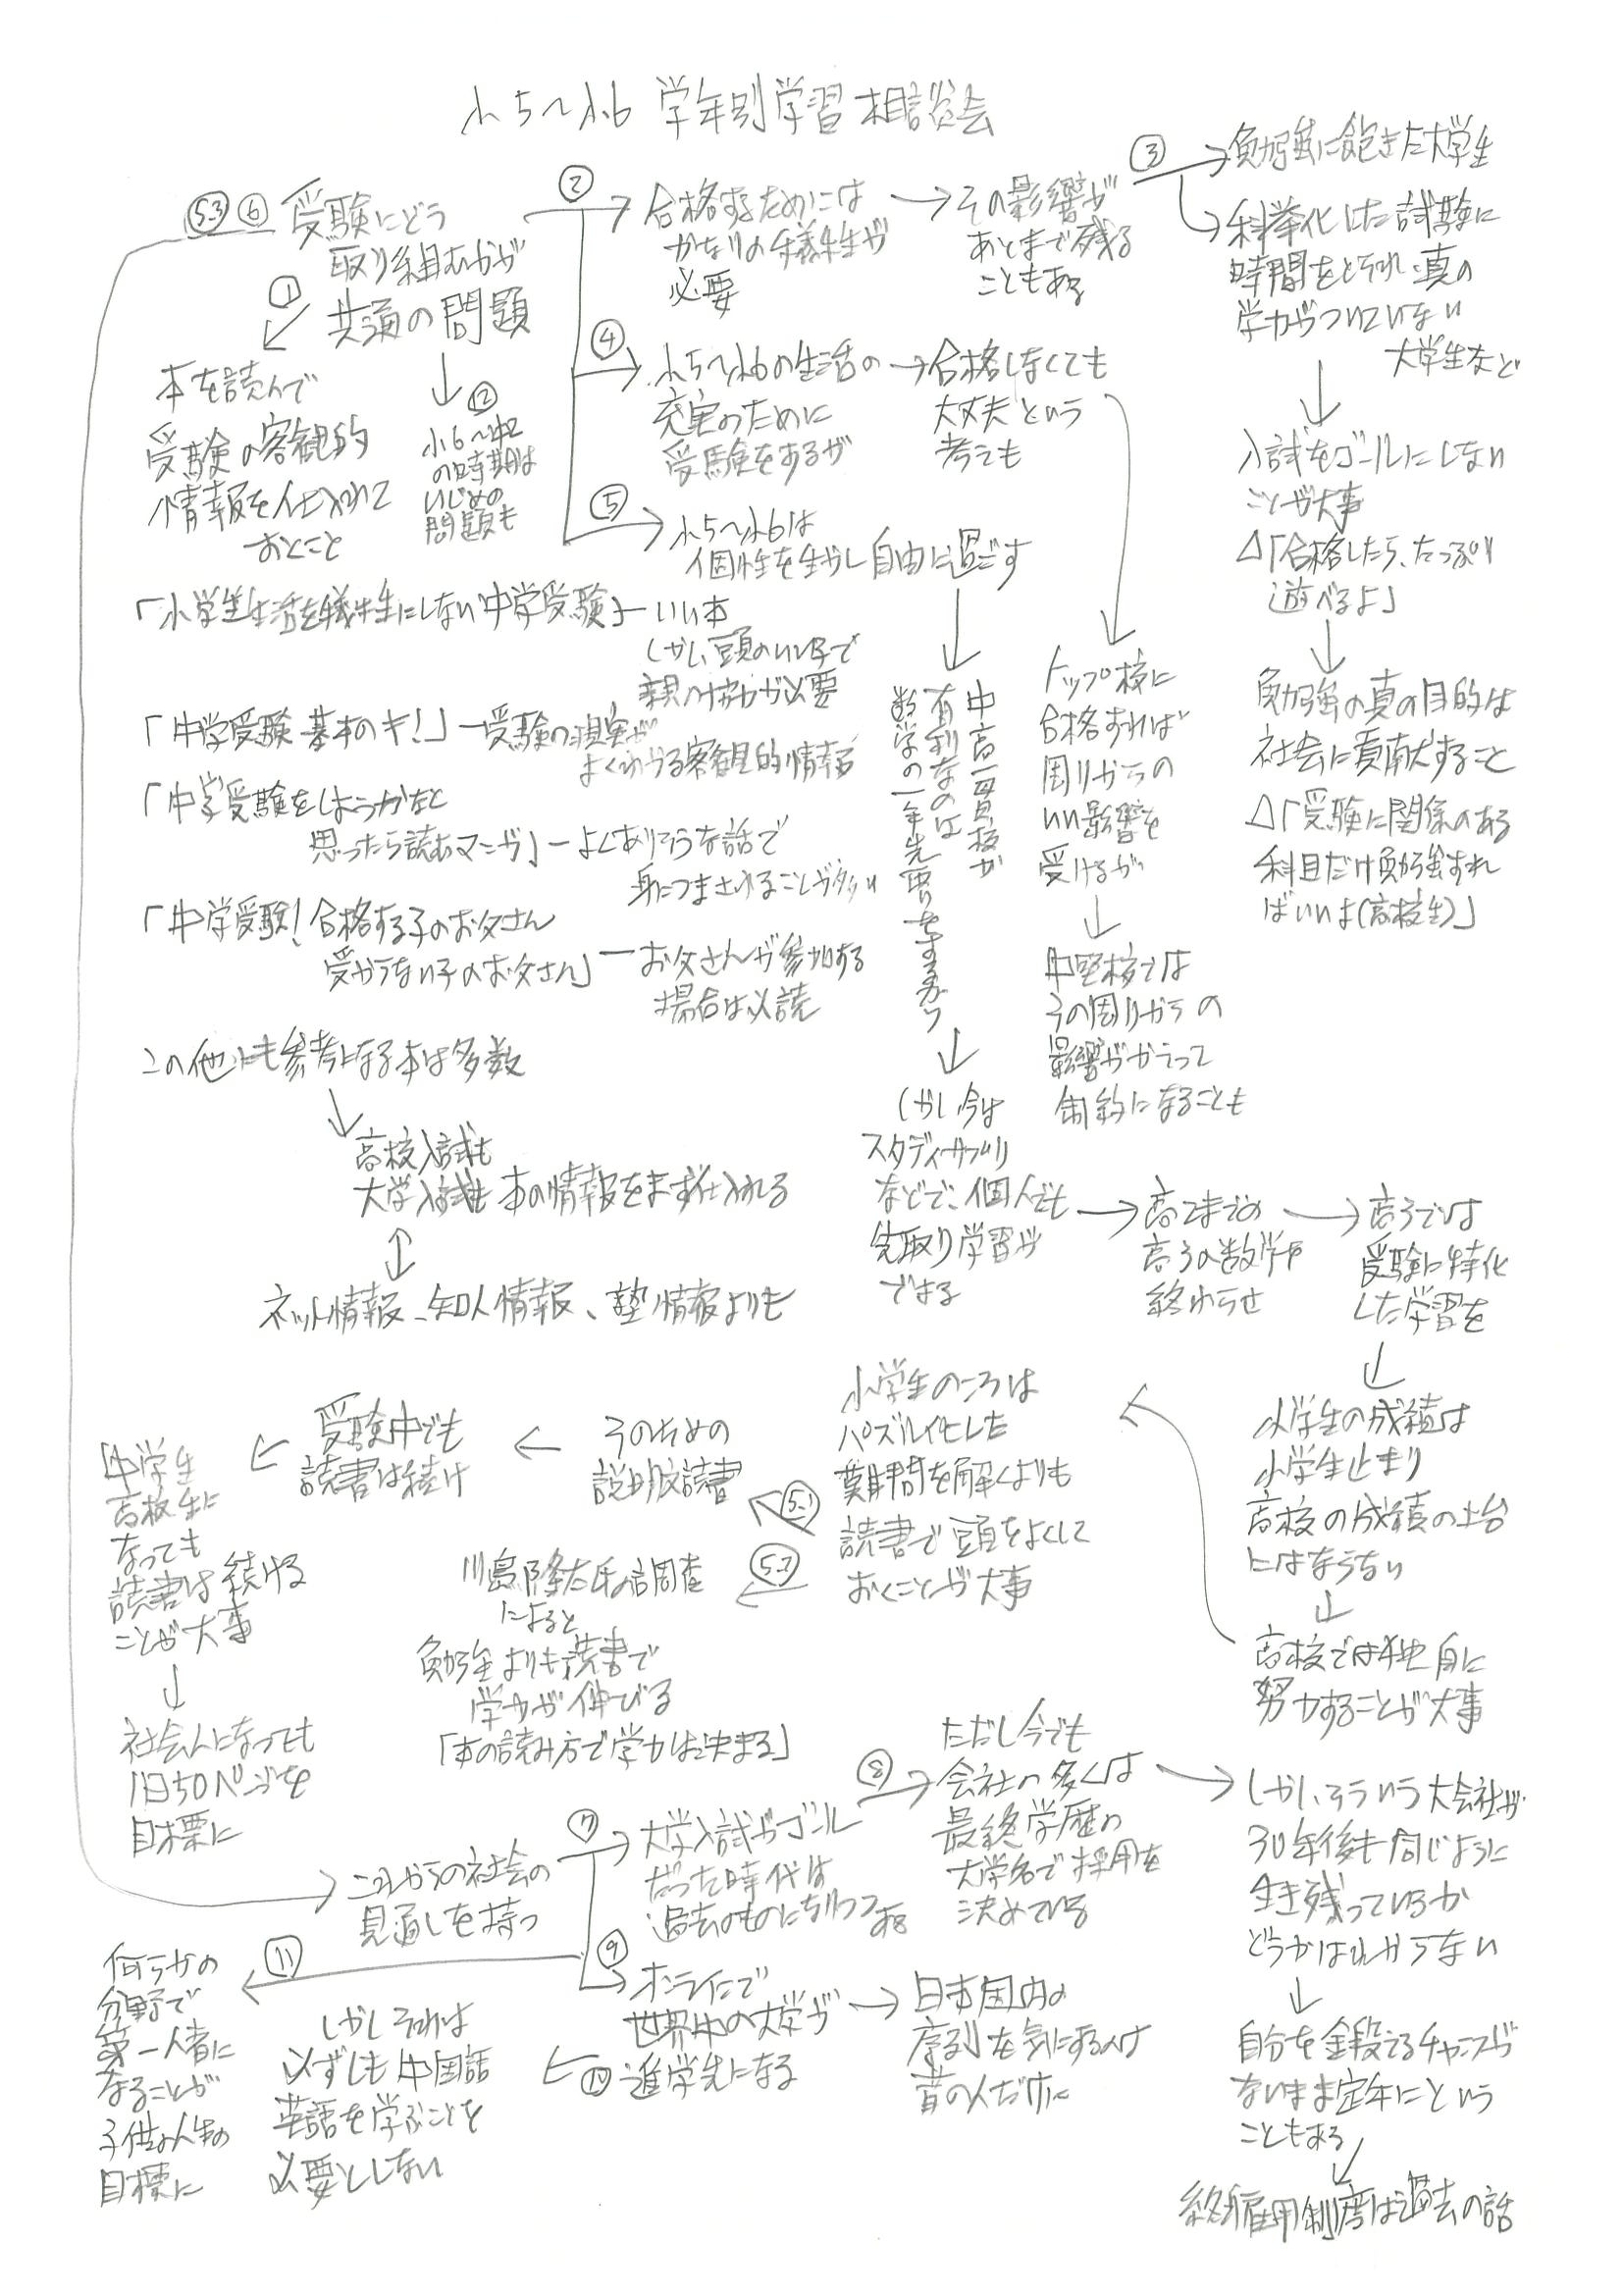 小5〜小6 学年別学習相談会
5.3 ⑥ 受験にどう
取り組むかが
共通の問題
①
本を読んで
受験の客観的
情報を仕入れて
おくこと
⑫
小6〜中2
の時期は
いじめの
問題も
「小学生生活を犠牲にしない中学受験」―いい本
しかし、頭のいい子で
親の協力が必要
「中学受験 基本のキ！」―受験の現実が
よくわかる客観的情報
「中学受験をしようかなと
思ったら読むマンガ」―よくありそうな話で
身につまされることが多い
「中学受験！合格する子のお父さん
受からない子のお父さん」―お父さんが参加する
場合は必読
この他にも参考になる本は多数
高校入試も
大学入試も 本の情報をまず仕入れる
ネット情報、知人情報、塾情報よりも
②
合格するためには
かなりの犠牲が
必要
その影響が
あとまで残る
こともある
③
勉強に飽きた大学生
科挙化した試験に
時間をとられ、真の
学力がついていない
大学生など
入試をゴールにしない
ことが大事
△「合格したら、たっぷり
遊べるよ」
勉強の真の目的は
社会に貢献すること
△「受験に関係のある
科目だけ勉強すれ
ばいいよ(高校生)」
④
小5〜小6の生活の
充実のために
受験をするが
合格しなくても
大丈夫という
考えも
トップ校に
合格すれば
周りからの
いい影響を
受けるが
中堅校では
その周りからの
影響がかえって
制約になることも
⑤
小5〜小6は
個性を生かし自由に過ごす
中高一貫校が
有利なのは
数学の一年先取りをするから
しかし今は
スタディサプリ
などで、個人でも
先取り学習が
できる
高2までの
高3の数学を
終わらせ
高3では
受験に特化
した学習を
小学生の成績は
小学生止まり
高校の成績の土台
にはならない
高校では独自に
努力することが大事
小学生のころは
パズル化した
難問を解くよりも
読書で頭をよくして
おくことが大事
5.1
そのための
説明文読書
受験中でも
読書は続け
中学生
高校生に
なっても
読書は続ける
ことが大事
社会人になっても
1日50ページを
目標に
5.2
川島隆太氏の調査
によると
勉強よりも読書で
学力が伸びる
「本の読み方で学力は決まる」
これからの社会の
見通しを持つ
⑦
大学入試がゴール
だった時代は
過去のものになりつつある
⑧
ただし今でも
会社の多くは
最終学歴の
大学名で採用を
決めている
しかし、そういう大会社が
30年後も同じように
生き残っているか
どうかはわからない
自分を鍛えるチャンスが
ないまま定年にという
こともある
終身雇用制度は過去の話
⑨
オンラインで
世界中の大学が
進学先になる
日本国内の
序列を気にするのは
昔の人だけに
⑩
しかしそれは
必ずしも中国語
英語を学ぶことを
必要としない
⑪
何らかの
分野で
第一人者に
なることが
子供の人生の
目標に